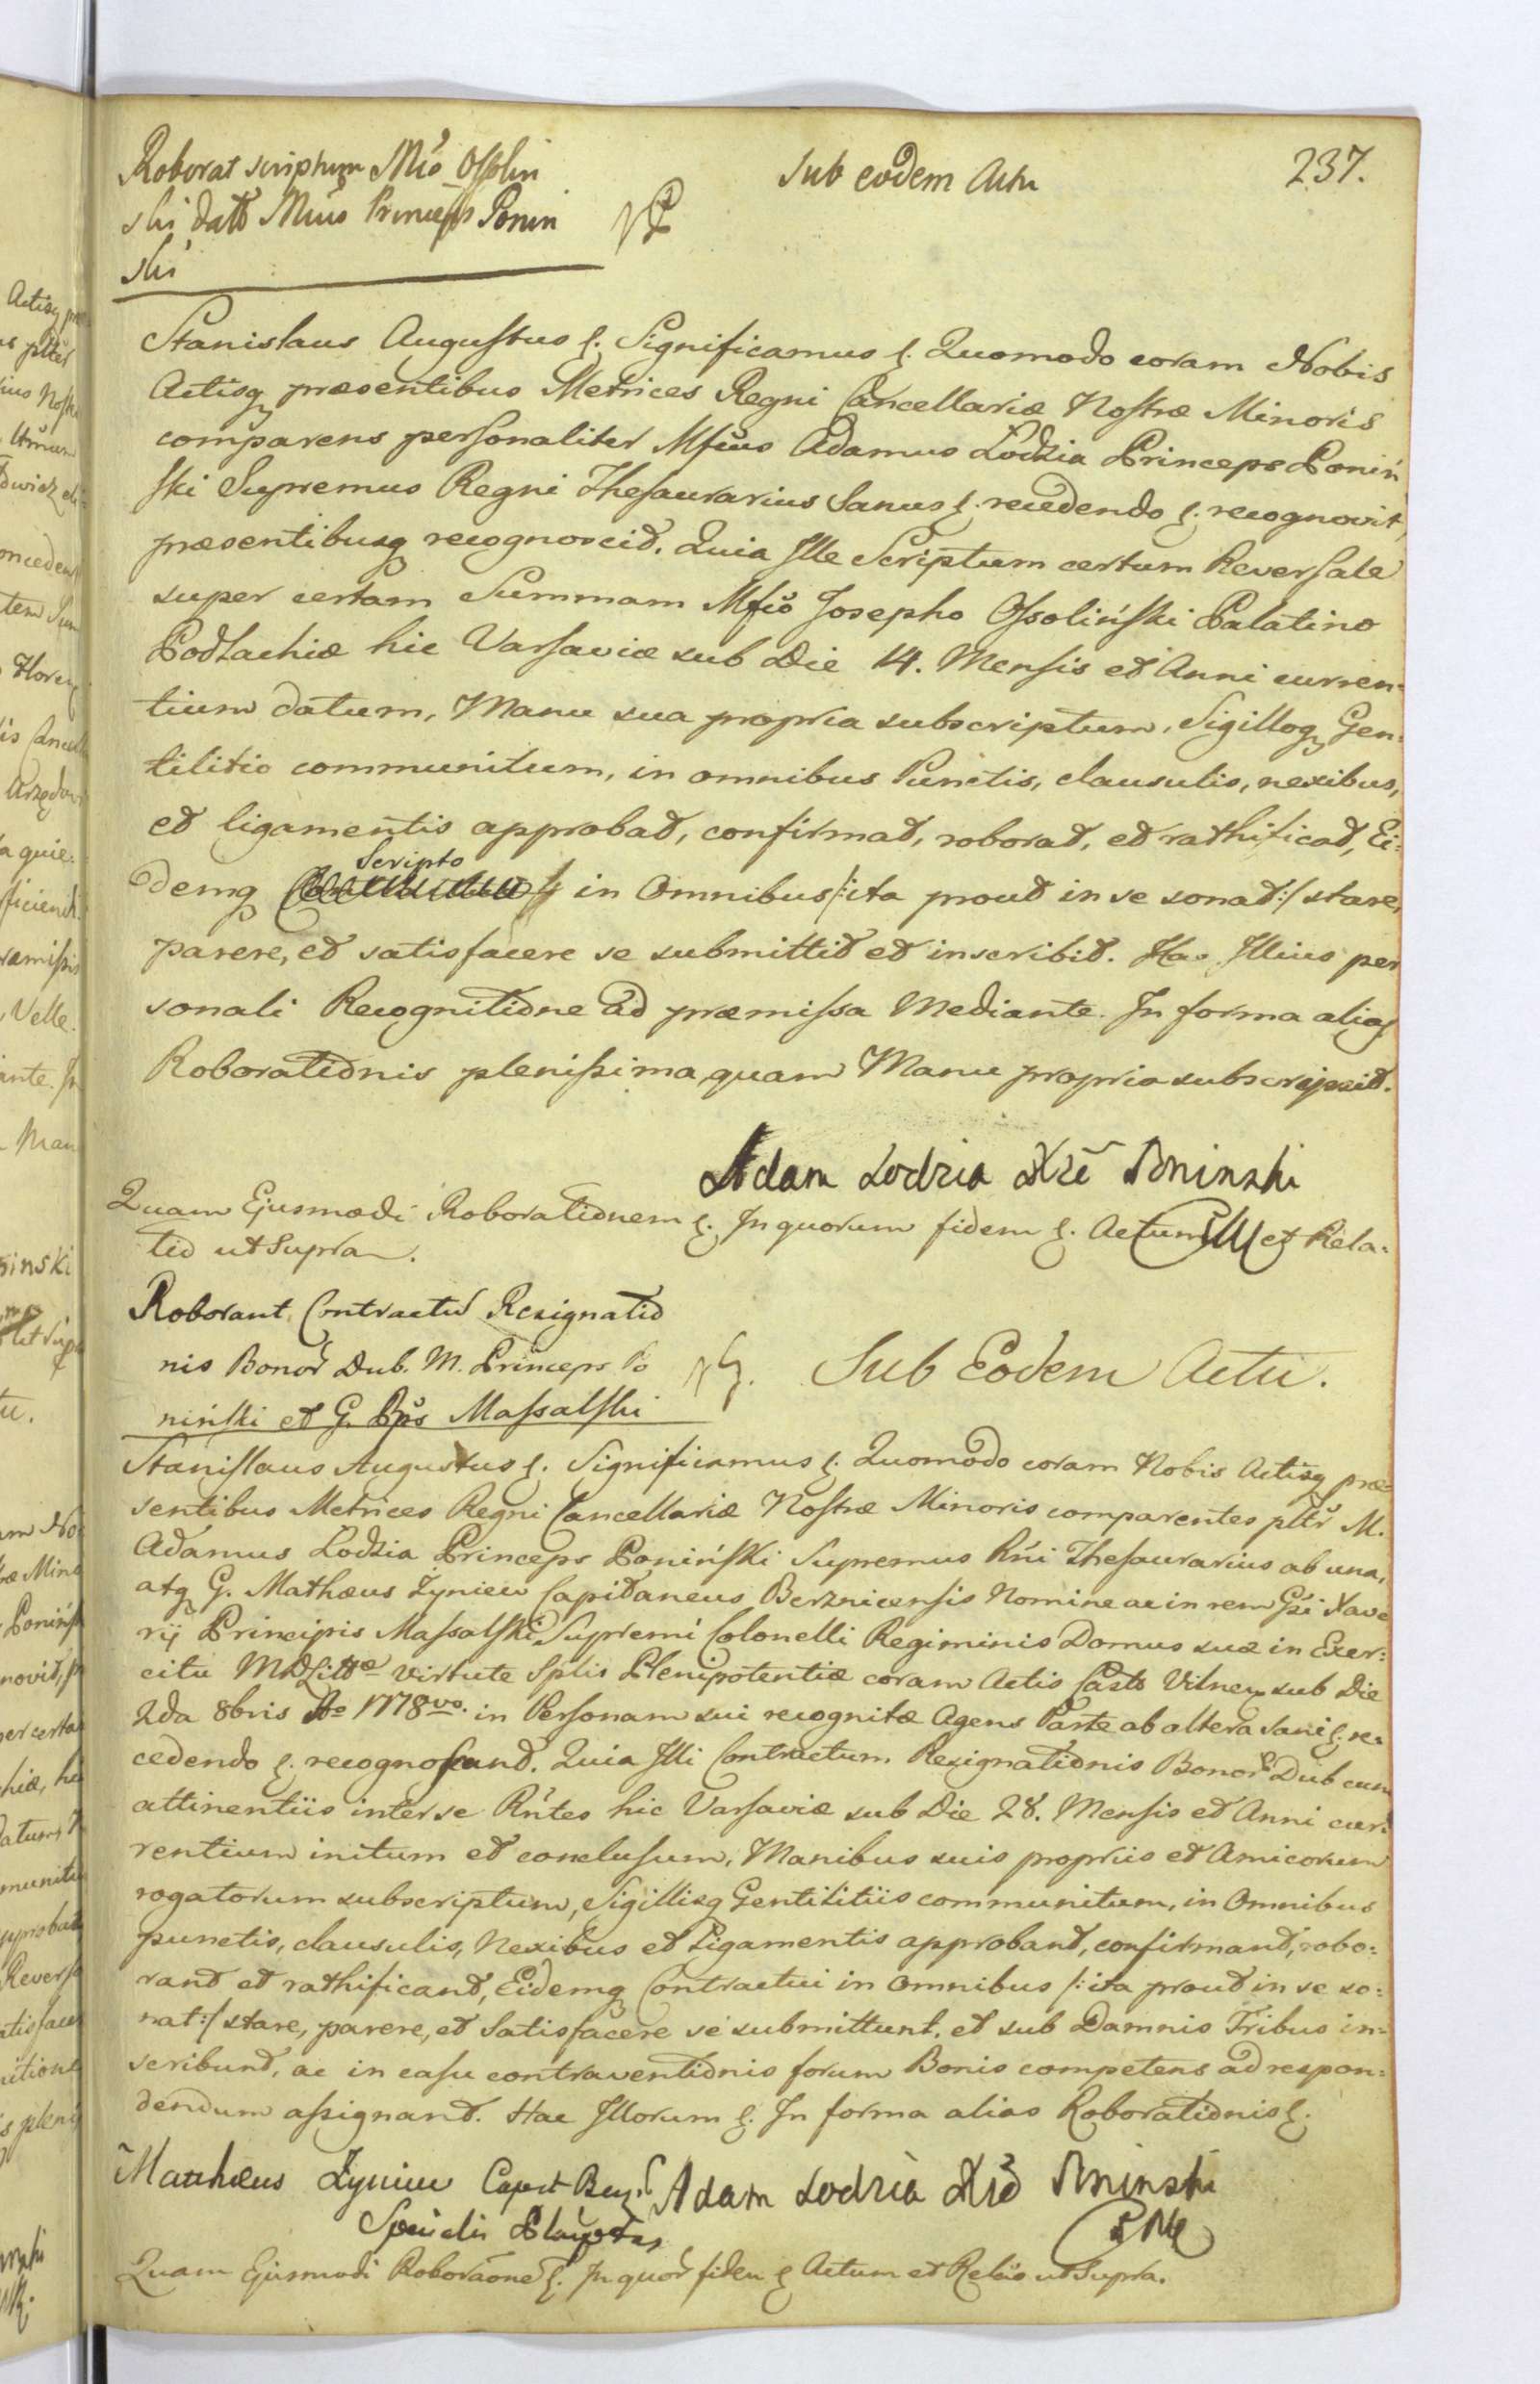 237.
Roborat scriptum Mfco Ossolin
ski datt Mfcus Princeps Ponin
ski
sub eodem Actu
Stanislaus Augustus &. Significamus &. Quomodo coram Nobis
Actisq præsentibus Metrices Regni Cancellariæ Nostræ Minoris
comparens personaliter Mfcus Adamus Lodzia Princeps Poniń
ski Supremus Regni Thesaurarius Sanus &. recedendo &. recognovit,
præsentibusq recognoscit. Quia Ille Scriptum certum Reversale
super certam Summam Mfco Josepho Ossoliński Palatino
Podlachiæ hic Varsaviæ sub Die 14. Mensis et Anni curren=
tium datum, Manu sua propria subscriptum, Sigilloq Gen=
tilitio communitum, in omnibus Punctis, clausulis, nexibus,
et ligamentis approbat, confirmat, roborat, et rathificat, Ei=
demq Scripto in Omnibus /:ita prout in se sonat:/ stare,
parere, et satisfacere se submittit et inscribit. Hac Illius per
sonali Recognitione ad præmissa Mediante. In forma alias
Roborationis plenissima, quam Manu propria subscripsit.
Adam Lodzia Xże Poninski
Quam Ejusmodi Roborationem &. In quorum fidem &. Actum et Rela=
tio ut Supra.
Roborant Contractum Resignatio
nis Bonor Dub. M. Princeps Po
niński et G. Pps Massalski
Sub Eodem Actu.
Stanislaus Augustus &. Significamus &. Quomodo coram Nobis Actisq præ=
sentibus Metrices Regni Cancellariæ Nostræ Minoris comparentes pltr M.
Adamus Lodzia Princeps Poniński Supremus Rni Thesaurarius ab una,
atq G. Mathæus Zyniew Capitaneus Berznicensis Nomine ac in rem Gsi Xave
rij Principis Massalski Supremi Colonelli Regiminis Domus suæ in Exer=
citu MDLittæ virtute Splis Plenipotentiæ coram Actis Casts Vilnen sub Die
2da 8bris Ao 1778vo. in Personam sui recognitæ Agens Parte ab altera sani &. re=
cedendo &. recognoscunt. Quia Illi Contractum Resignationis Bonor Dub cum
attinentiis inter se Rntes hic Varsaviæ sub Die 28. Mensis et Anni cur=
rentium initum et conclusum, Manibus suis propriis et Amicorum
rogatorum subscriptum, Sigillisq Gentilitiis communitum, in Omnibus
punctis, clausulis, Nexibus et Ligamentis approbant, confirmant, robo=
rant et rathificant, Eidemq Contractui in omnibus /:ita prout in se so=
nat:/ stare, parere, et Satisfacere se submittunt, et sub Damnis Tribus in=
scribunt, ac in casu contraventionis forum Bonis competens ad respon=
dendum assignant. Hac Illorum &. In forma alias Roborationis &.
Matthæus Zyniew Capit Berz
Specialis
Adam Lodzia Xże Poninski
Quam Ejusmodi Roboraone &. In quor fidem & Actum et Relaio ut Supra.